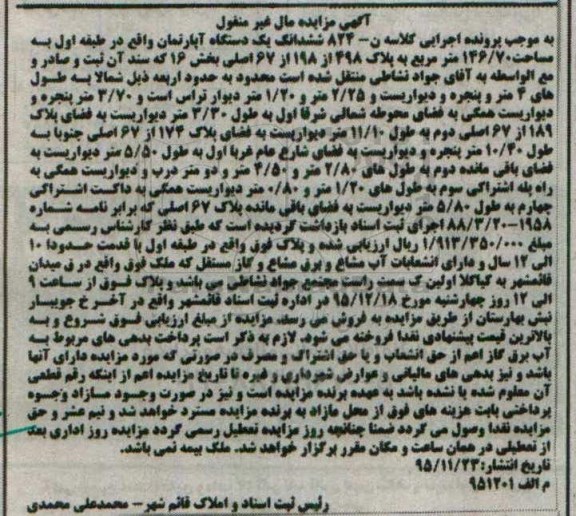 آگهی مزایده مال غیر منقول
به موجب پرونده اجرایی کلاسه ن- ۸۲۴ ششدانگ یک دستگاه آپارتمان واقع در طبقه اول به
مساحت ۱۴۶/۷۰ متر مربع به پلاک ۴۹۸ از ۱۹۸ از ۶۷ اصلی بخش ۱۶ که سند آن ثبت و صادر و
مع الواسطه به آقای جواد نشاطی منتقل شده است محدود به حدود اربعه ذیل شمالا به طول
های ۴ متر و پنجره و دیواریست و ۲/۲۵ متر و ۱/۲۰ متر دیوار تراس است و ۳/۷۰ متر پنجره و
دیواریست همگی به فضای محوطه شمالی شرقا اول به طول ۳/۳۰ متر دیواریست به فضای پلاک
۱۸۹ از ۶۷ اصلی دوم به طول ۱۱/۱۰ متر دیواریست به فضای پلاک ۱۷۴ از ۶۷ اصلی جنوبا به
طول ۱۰/۴۰ متر پنجره و دیواریست به فضای شارع عام غربا اول به طول ۵/۵۰ متر دیواریست به
فضای باقی مانده دوم به طول های ۲/۸۰ متر و ۴/۵۰ متر و دو متر درب و دیواریست همگی به
راه پله اشتراکی سوم به طول های ۱/۲۰ متر و ۰/۸۰ متر دیواریست همگی به داکت اشتراکی
چهارم به طول ۵/۸۰ متر دیواریست به فضای باقی مانده پلاک ۶۷ اصلی که برابر نامه شماره
۱۹۵۸-۸۸/۳/۲۰ اجرای ثبت اسناد بازداشت گردیده است که طبق نظر کارشناس رسمی به
مبلغ ۱/۹۱۳/۳۵۰/۰۰۰ ریال ارزیابی شده و پلاک فوق واقع در طبقه اول با قدمت حدودا ۱۰
الی ۱۲ سال و دارای انشعابات آب مشاع و برق مشاع و گاز مستقل که ملک فوق واقع در ق میدان
قائمشهر به کیاکلا اولین ک سمت راست مجتمع جواد نشاطی می باشد و پلاک فوق از ساعت ۹
الی ۱۲ روز چهارشنبه مورخ ۹۵/۱۲/۱۸ در اداره ثبت اسناد قائمشهر واقع در آخر خ جویبار
نبش بهارستان از طریق مزایده به فروش می رسد. مزایده از مبلغ ارزیابی فوق شروع و به
بالاترین قیمت پیشنهادی نقدا فروخته می شود. لازم به ذکر است پرداخت بدهی های مربوط به
آب برق گاز اعم از حق انشعاب و یا حق اشتراک و مصرف در صورتی که مورد مزایده دارای آنها
باشد و نیز بدهی های مالیاتی و عوارض شهرداری و غیره تا تاریخ مزایده اعم از اینکه رقم قطعی
آن معلوم شده یا نشده باشد به عهده برنده مزایده است و نیز در صورت وجود مازاد وجوه
پرداختی بابت هزینه های فوق از محل مازاد به برنده مزایده مسترد خواهد شد و نیم عشر و حق
مزایده نقدا وصول می گردد ضمنا چنانچه روز مزایده تعطیل رسمی گردد مزایده روز اداری بعد
از تعطیلی در همان ساعت و مکان مقرر برگزار خواهد شد. ملک بیمه نمی باشد.
تاریخ انتشار: ۹۵/۱۱/۲۳
م الف ۹۵۱۲۰۱
رئیس ثبت اسناد و املاک قائم شهر – محمدعلی محمدی